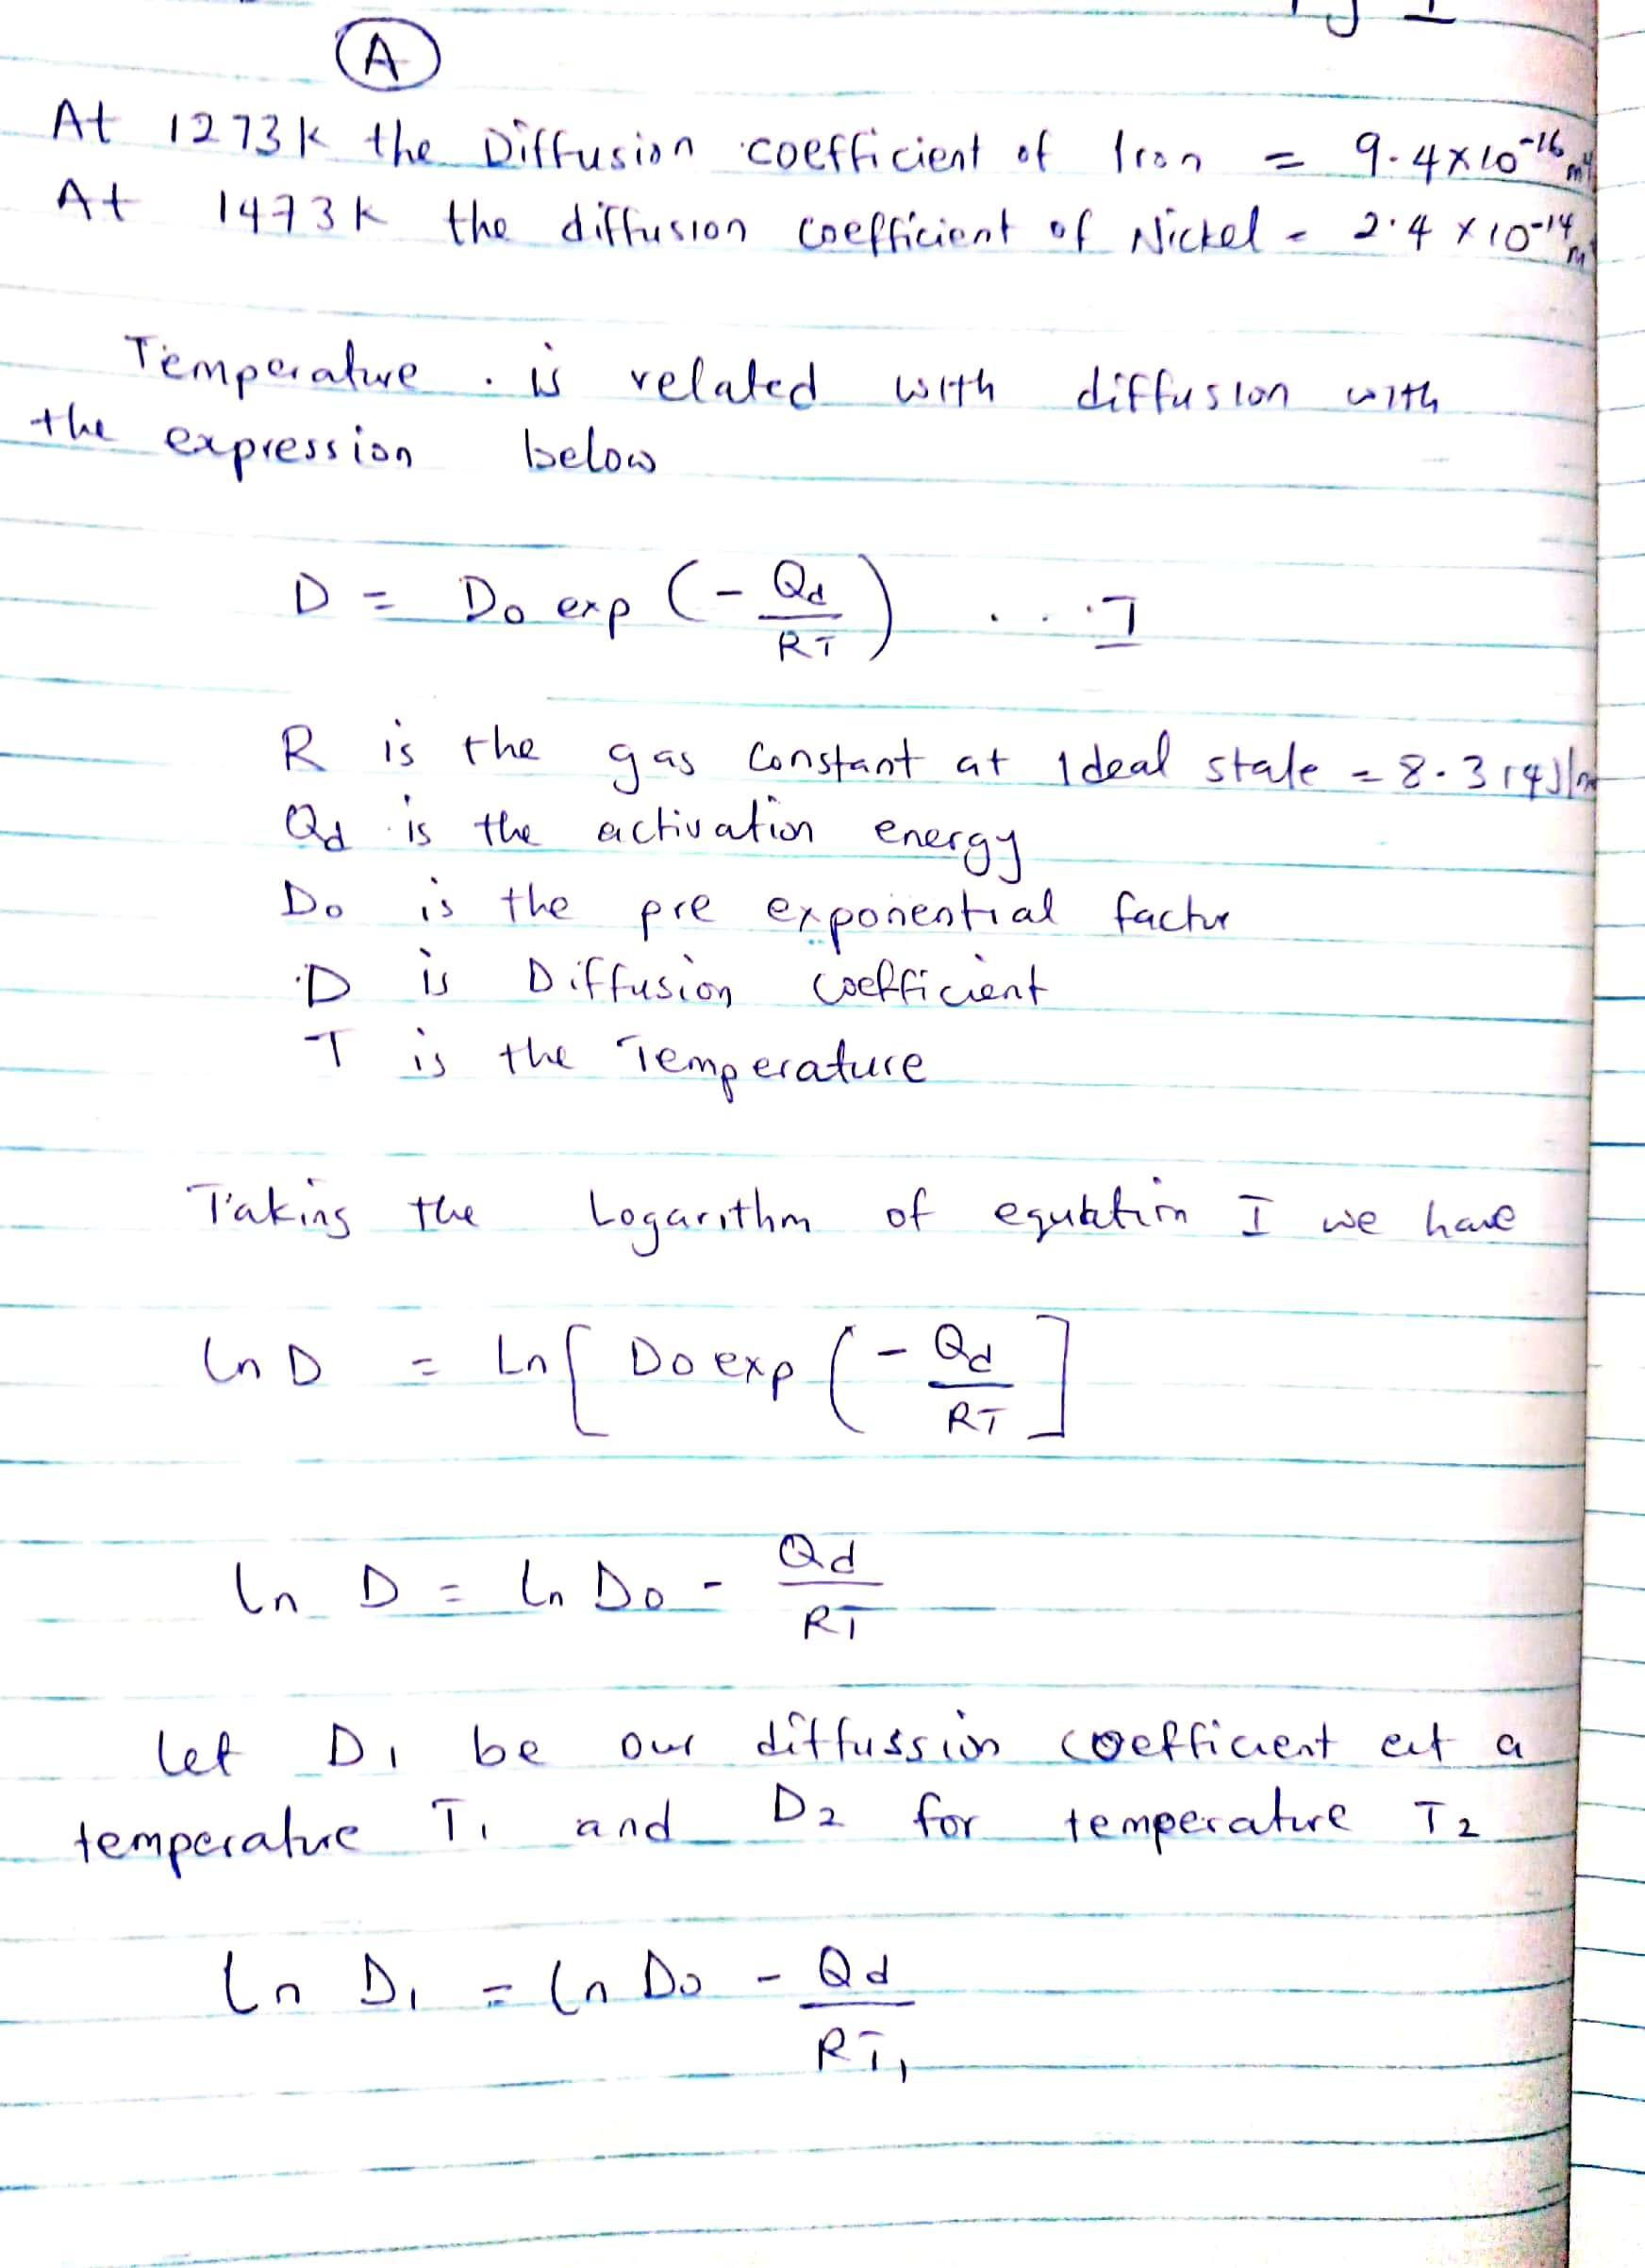 A
At 1273k the Diffusion coefficient of Iron = 9.4x10^-16
At 1473k the diffusion coefficient of Nickel = 2.4 x 10^-14
Temperature is related with diffusion with
the expression below
D = Do exp (- Qd/RT) ... I
R is the gas constant at Ideal state = 8.314J/
Qd is the activation energy
Do is the pre exponential factor
D is Diffusion coefficient
T is the Temperature
Taking the Logarithm of equation I we have
ln D = Ln [Do exp (- Qd/RT ]
ln D = ln Do - Qd/RT
let D1 be our diffussion coefficient at a
temperature T1 and D2 for temperature T2
ln D1 = ln Do - Qd/RT1